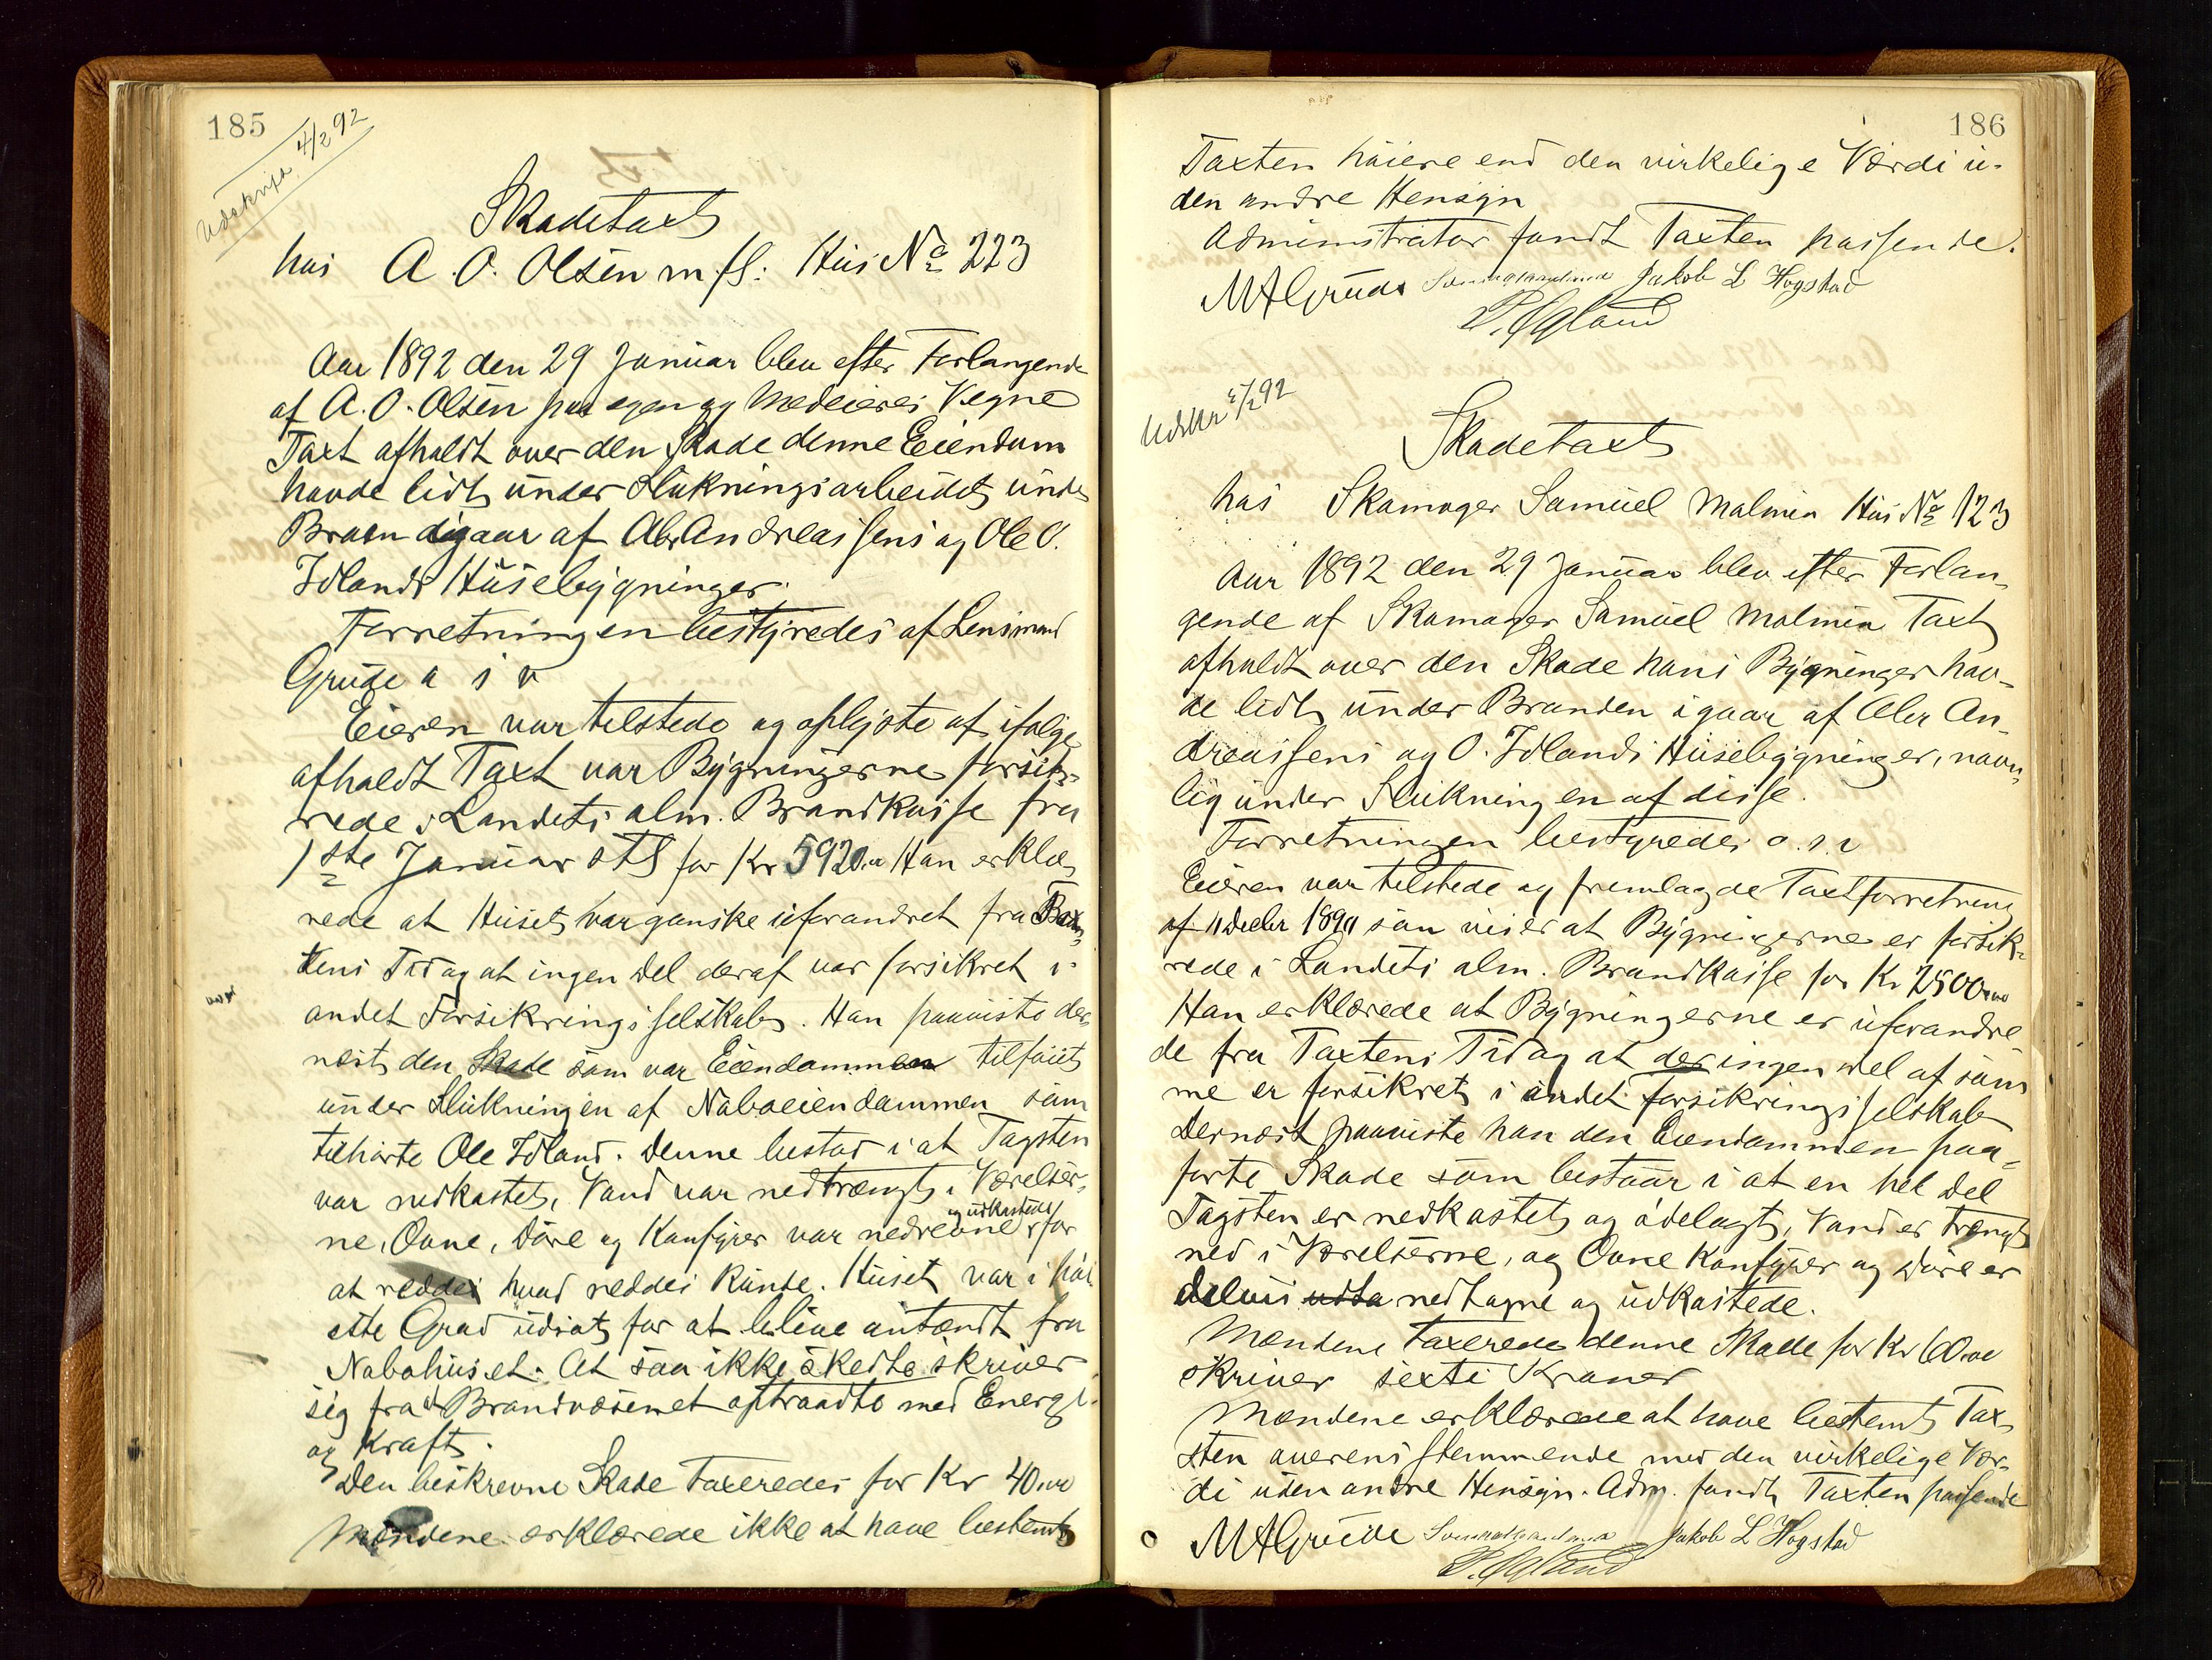 185
Udskrift 4/2 92
Skadetaxt
hos A. O. Olsen m fl: Hus No 223
Aar 1892 den 29 Januar blev efter Forlangende
af A. O. Olsen paa egen og Medeieres Vegne
Taxt afholdt over den Skade denne Eiendom
havde lidt under Slukningsarbeidet under
Branden igaar af Abr Andreassens og Ole O.
Idlands Husebygninger.
Forretningen bestyredes af Lensmand
Grude o s v
Eieren var tilstede og oplyste at ifølge
afholdt Taxt var Bygningerne forsik-
rede i Landets alm. Brandkasse fra
1ste Januar d. A. for Kr 5920.00 Han erklæ-
rede at Huset var ganske uforandret fra Tax-
tens Tid og at ingen Del deraf var forsikret i
andet Forsikringsselskab. Han paaviste der-
næst den Skade som var Eiendommen tilføiet
under Slukningen af Naboeiendommen som
tilhørte Ole Idland. Denne bestod i at Tagsten
var nedkastet, Vand var nedtrængt i Værelser-
ne, Ovne, Døre og Komfyrer var nedrevne og udkastede for
at reddes hvad reddes kunde. Huset var i høi-
este Grad udsat for at blive antændt fra
Nabohuset. At saa ikke skedte skriver
sig fra at Brandvæsenet optraadte med Energi
og Kraft.
Den beskrevne Skade taxeredes for Kr 40.00
Mændene erklærede ikke at have bestemt
186
Taxten høiere end den virkelige Værdi u-
den andre Hensyn
Administrator fandt Taxten passende.
M A Grude Jakob L Hogstad
Udskr 4/2 92
Skadetaxt
hos Skomager Samuel Malmin Hus No 123
Aar 1892 den 29 Januar blev efter Forlan-
gende af Skomager Samuel Malmin Taxt
afholdt over den Skade hans Bygninger hav-
de lidt under Branden igaar af Abr An-
dreassens og O. Idlands Husebygninger, navn-
lig under Slukningen af disse.
Forretningen bestyredes o. s. v
Eieren var tilstede og fremlagde Taxtforretning
af 11 Decbr 1890 som viser at Bygningerne er forsik-
rede i Landets alm. Brandkasse for Kr 2500.00
Han erklærede at Bygningerne er uforandre
de fra Taxtens Tid og at der ingen Del af sam
me er forsikret i andet Forsikringsselskab
Dernæst paaviste han den Eiendommen paa-
førte Skade som bestaar i at en hel Del
Tagsten er nedkastet og ødelagt, Vand er trængt
ned i Værelserne, og Ovne Komfyrer og Døre er
delvis udta nedtagne og udkastede.
Mændene taxerede denne Skade for Kr 60.00
skriver sexti Kroner
Mændene erklærede at have bestemt Tax
ten overensstemmende med den virkelige Vær-
di uden andre Hensyn. Adm. fandt Taxten passende
M A Grude Jakob L Hogstad